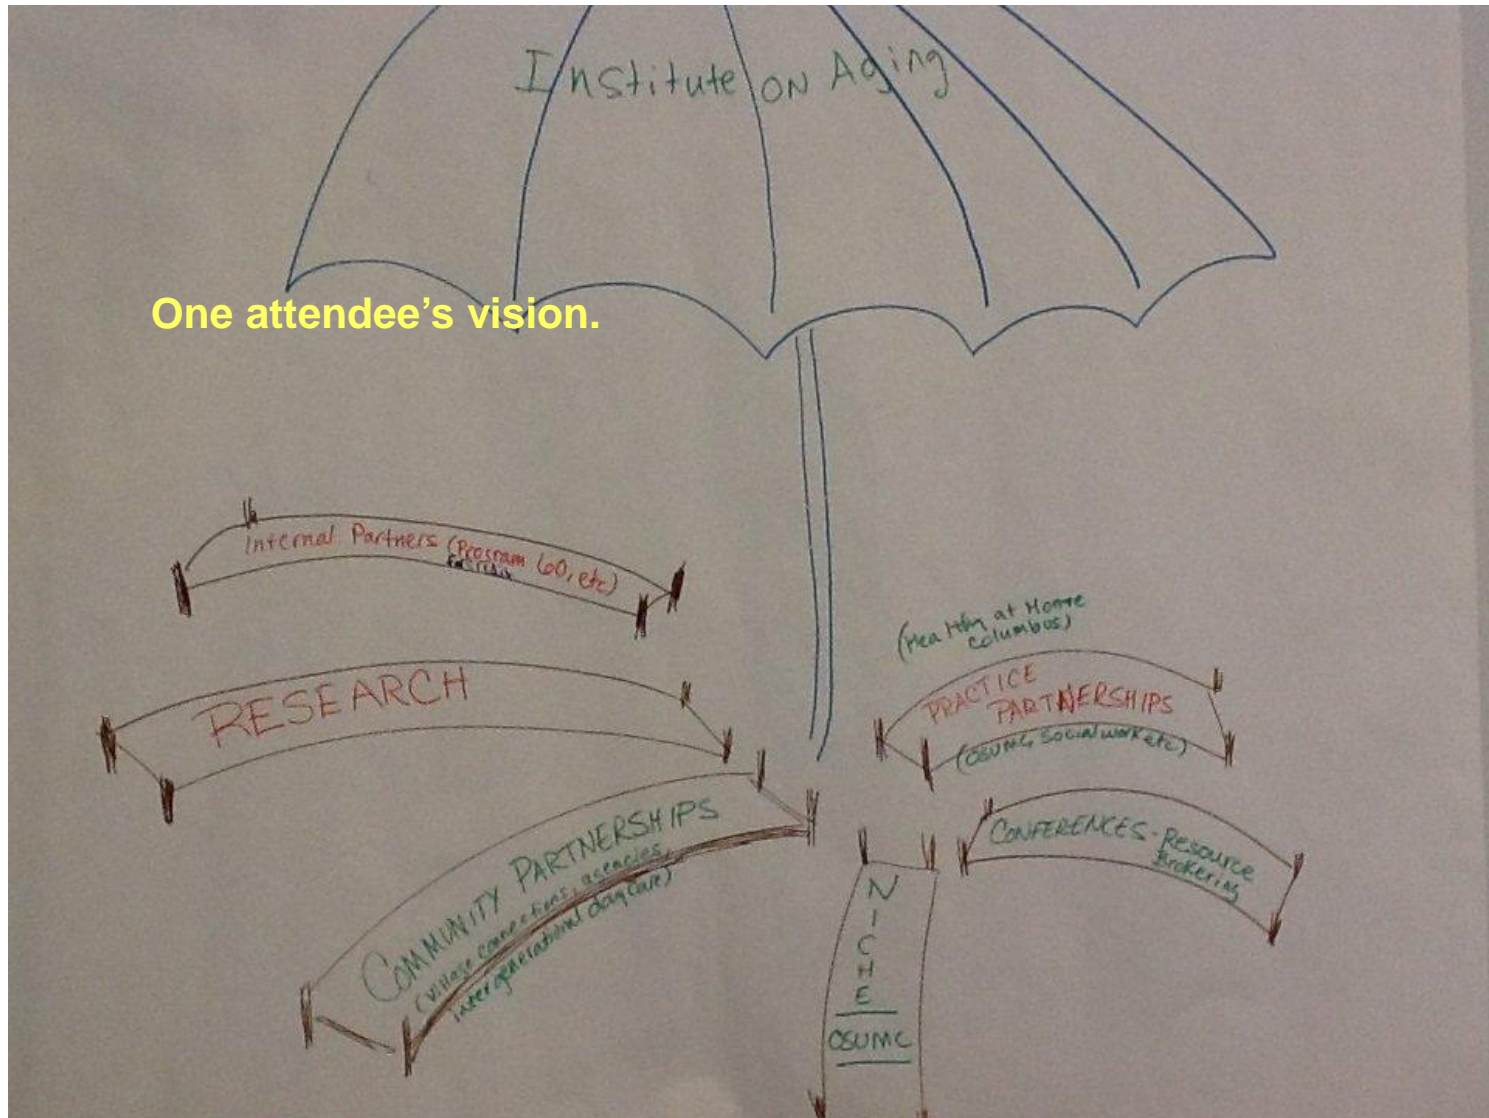 Institute ON Aging
One attendee’s vision.
Internal Partners (Program 60, etc)
RESEARCH
COMMUNITY PARTNERSHIPS
(village connections, agencies,
intergenerational daycare)
(Healthy at Home
Columbus)
PRACTICE
PARTNERSHIPS
(OSUMC, Social work etc)
CONFERENCES - Resource
Brokering
NICHE
OSUMC